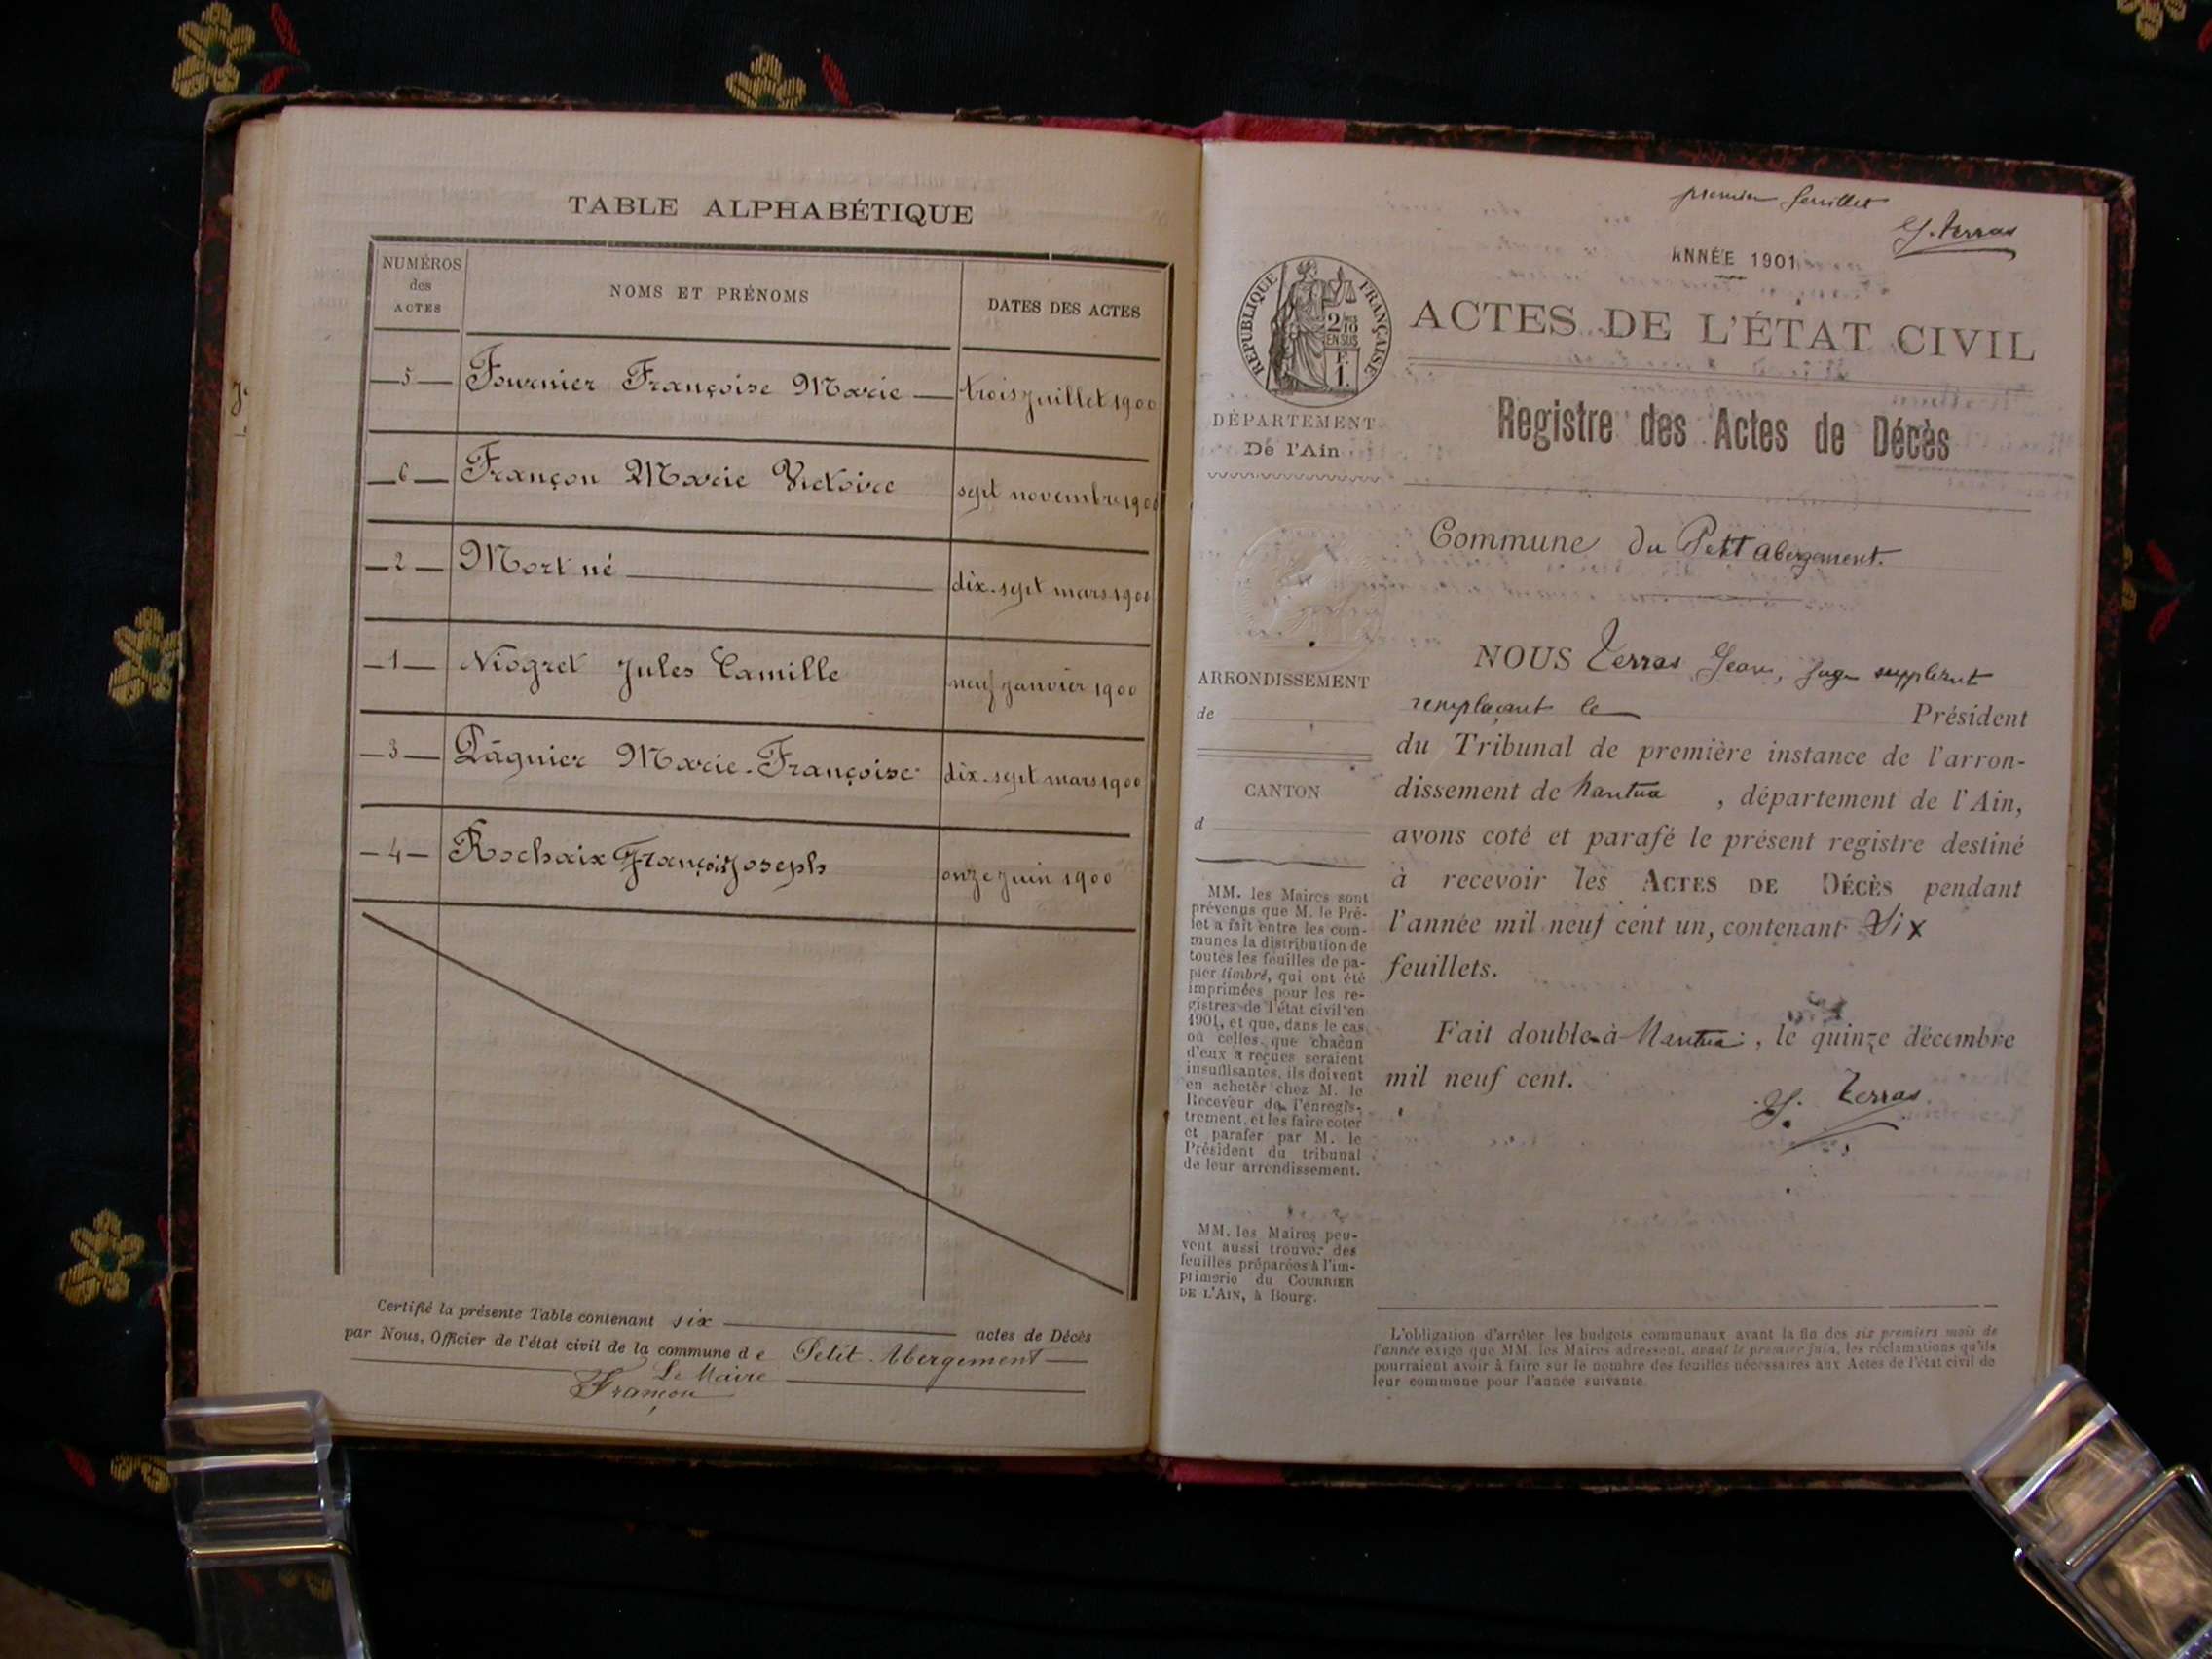 TABLE ALPHABÉTIQUE
NUMÉROS
des
ACTES
NOMS ET PRÉNOMS
DATES DES ACTES
—5— Fournier Françoise Marie — trois juillet 1900
—6— Françon Marie Victoire sept novembre 1900
—2— Mort né — dix-sept mars 1900
—1— Niogret Jules Camille neuf janvier 1900
—3— Pâgnier Marie-Françoise dix-sept mars 1900
—4— Rochaix François Joseph onze juin 1900
Certifié la présente Table contenant six — actes de Décès
par Nous, Officier de l'état civil de la commune de Petit-Abergement —
Le Maire
Françon
premier feuillet
J. Terras
ANNÉE 1901
RÉPUBLIQUE FRANÇAISE
2/10
EN SUS
F.
1.
ACTES DE L'ÉTAT CIVIL
DÉPARTEMENT
De l'Ain
Registre des Actes de Décès
Commune du Petit abergement.
ARRONDISSEMENT
de
CANTON
d
NOUS Terras Jean, juge suppléant
remplaçant le Président
du Tribunal de première instance de l'arron-
dissement de Nantua, département de l'Ain,
avons coté et parafé le présent registre destiné
à recevoir les ACTES DE DÉCÈS pendant
l'année mil neuf cent un, contenant Six
feuillets.
Fait double à Nantua, le quinze décembre
mil neuf cent.
J. Terras
MM. les Maires sont
prévenus que M. le Pré-
fet a fait entre les com-
munes la distribution de
toutes les feuilles de pa-
pier timbré, qui ont été
imprimées pour les re-
gistres de l'état civil en
1901, et que, dans le cas
où celles que chacun
d'eux a reçues seraient
insuffisantes, ils doivent
en acheter chez M. le
Receveur de l'enregis-
trement, et les faire coter
et parafer par M. le
Président du tribunal
de leur arrondissement.
MM. les Maires peu-
vent aussi trouver des
feuilles préparées à l'im-
primerie du COURRIER
DE L'AIN, à Bourg.
L'obligation d'arrêter les budgets communaux avant la fin des six premiers mois de
l'année exige que MM. les Maires adressent, avant le premier juin, les réclamations qu'ils
pourraient avoir à faire sur le nombre des feuilles nécessaires aux Actes de l'état civil de
leur commune pour l'année suivante.